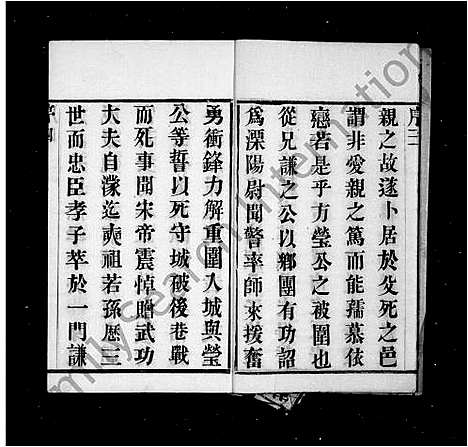 序三
親之故遂卜居於父死之邑
謂非愛親之篤而能孺慕依
戀若是乎方瑩公之被圍也
從兄謙之公以鄉團有功詔
爲溧陽尉聞警率師來援奮
勇衝鋒力解重圍入城與瑩
公等誓以死守城破後巷戰
而死事聞宋帝震悼贈武功
大夫自濠迄奭祖若孫歷三
世而忠臣孝子萃於一門謙
序四